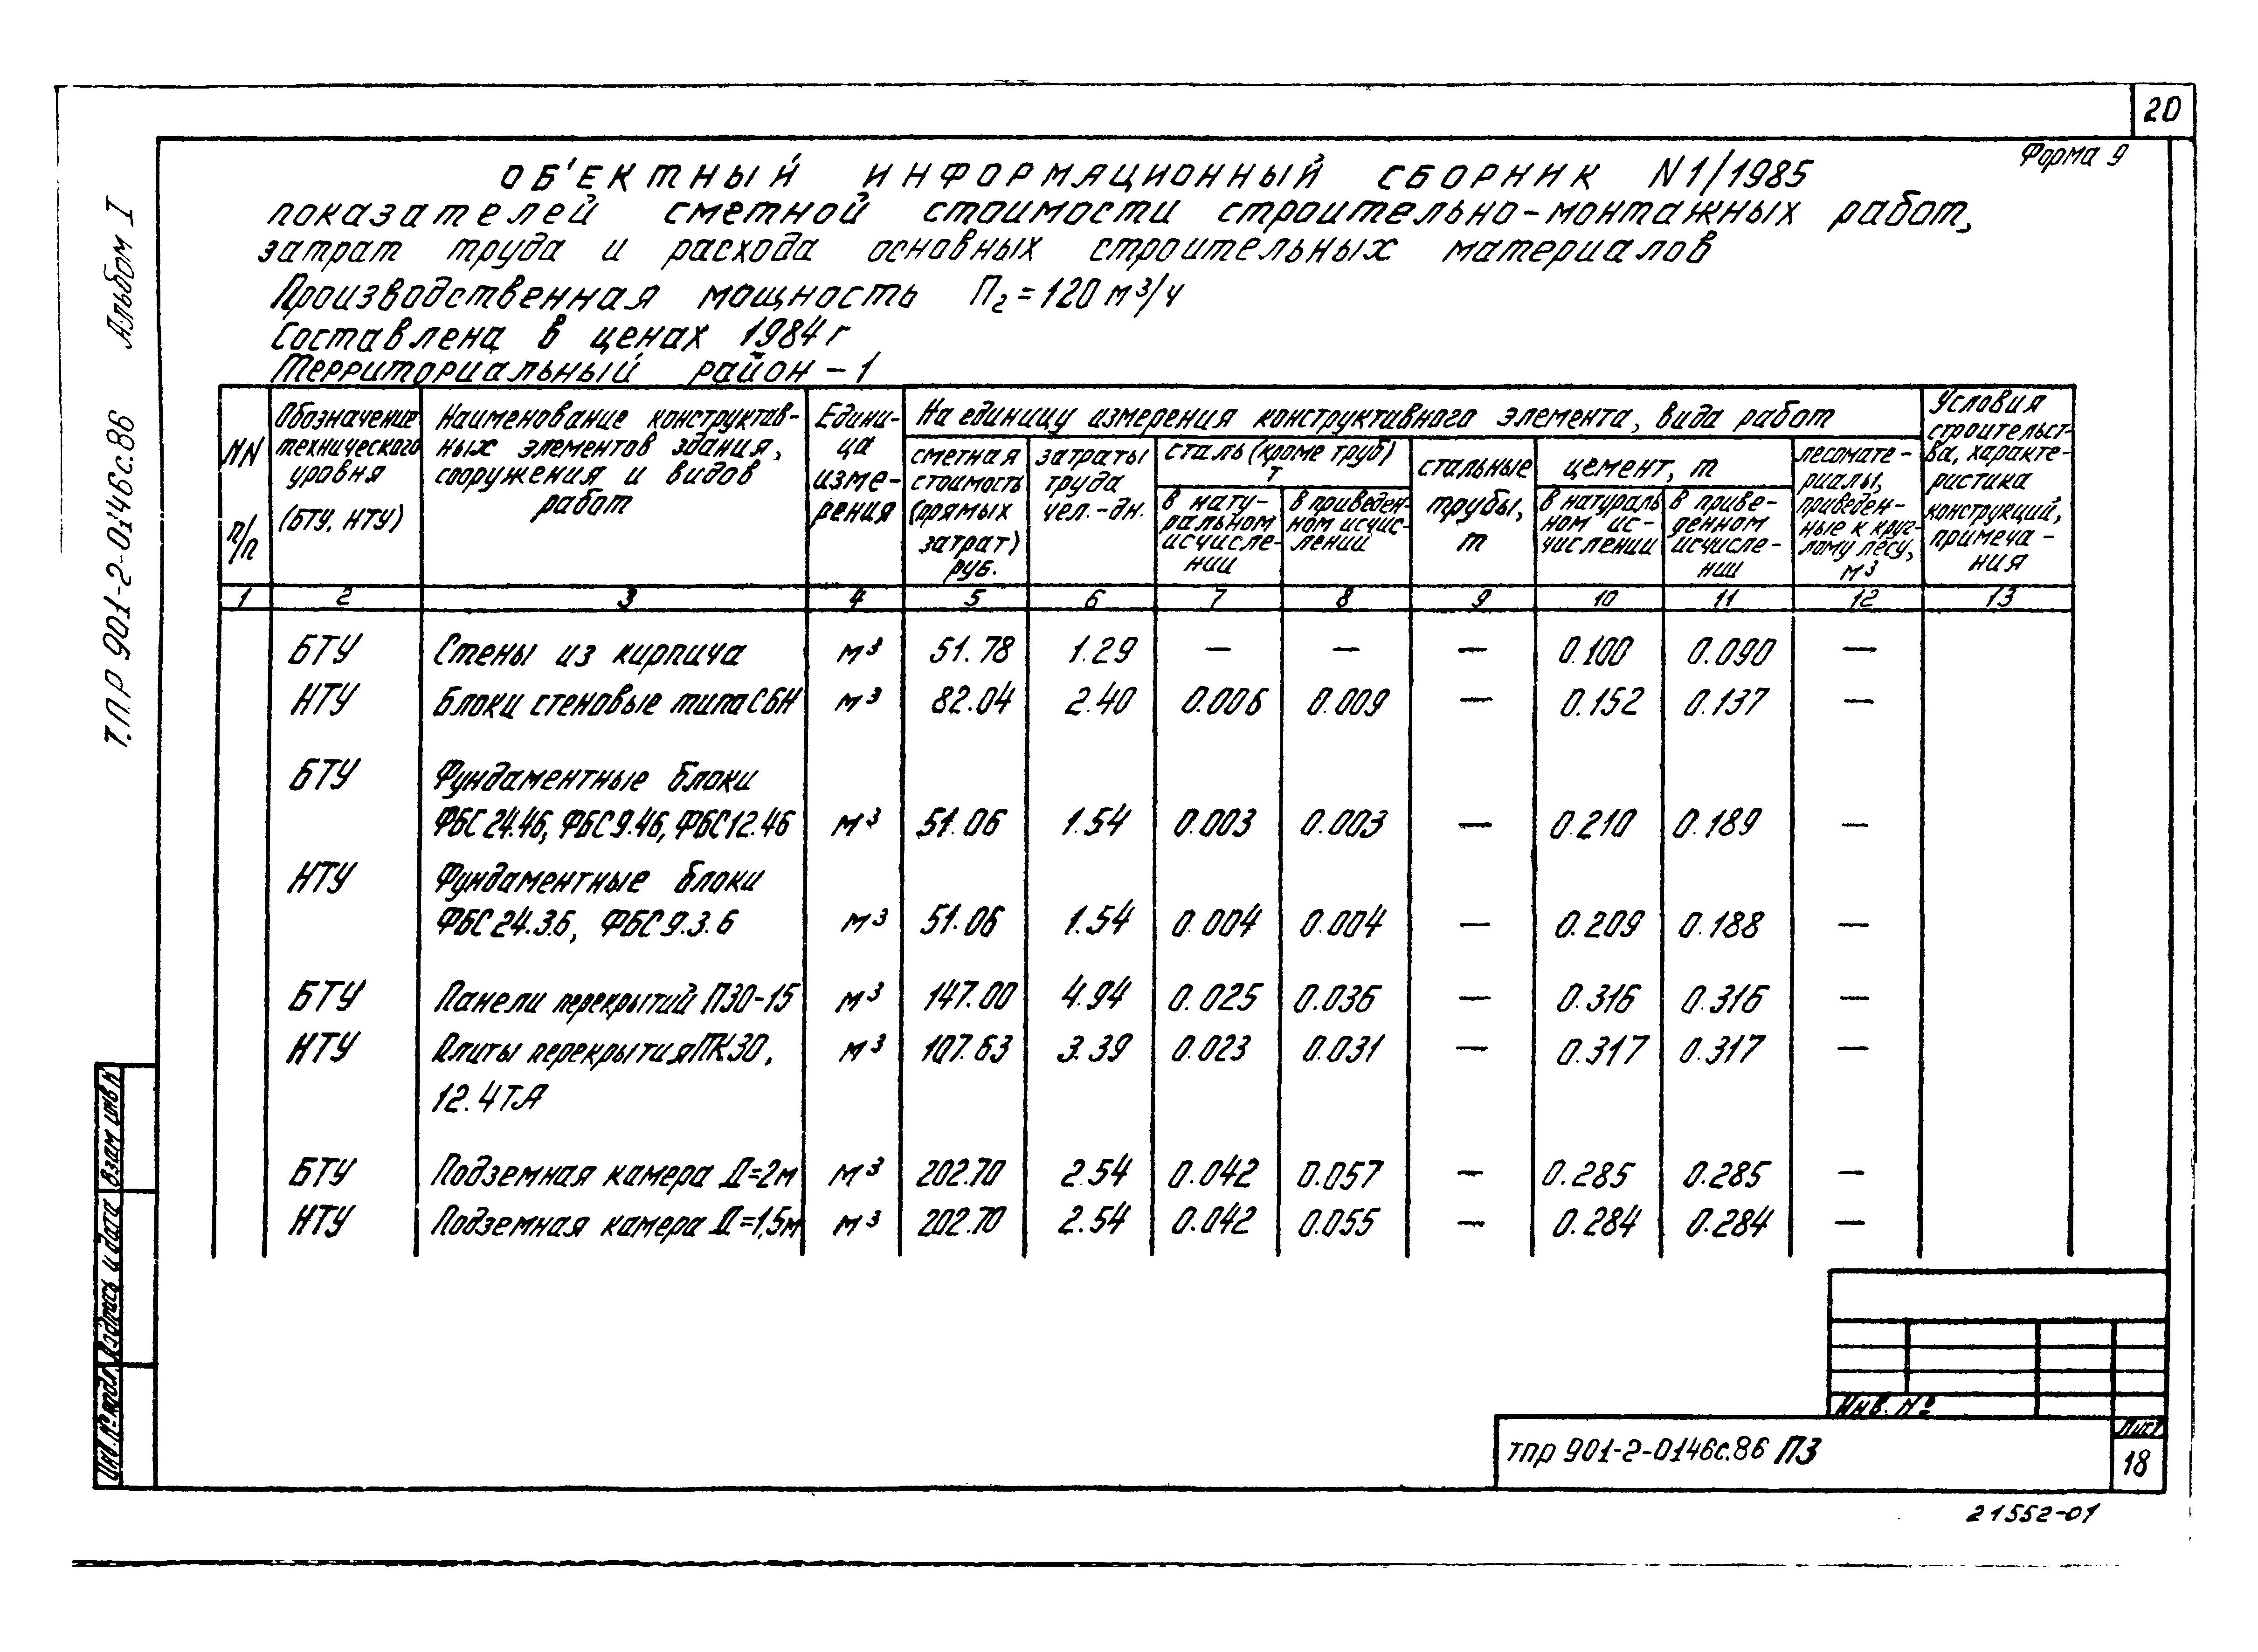 20
Форма 9
ОБ'ЕКТНЫЙ ИНФОРМАЦИОННЫЙ СБОРНИК N1/1985
показателей сметной стоимости строительно-монтажных работ,
затрат труда и расхода основных строительных материалов
Производственная мощность П₂=120 м³/ч
Составлена в ценах 1984 г
Территориальный район - 1
Альбом I
Т.П.Р 901-2-0146с.86
NN п/п
Обозначение технического уровня (БТУ, НТУ)
Наименование конструктив-
ных элементов здания,
сооружения и видов
работ
Едини-
ца
изме-
рения
На единицу измерения конструктивного элемента, вида работ
сметная
стоимость
(прямых
затрат)
руб.
затраты
труда
чел.-дн.
сталь (кроме труб)
т
в нату-
ральном
исчисле-
нии
в приведен-
ном исчис-
лении
стальные
трубы,
т
цемент, т
в натураль
ном ис-
числении
в приве-
денном
исчисле-
нии
лесомате-
риалы,
приведен-
ные к круг-
лому лесу,
м³
Условия
строительст-
ва, характе-
ристика
конструкций,
примеча-
ния
1 2 3 4 5 6 7 8 9 10 11 12 13
БТУ Стены из кирпича м³ 51.78 1.29 — — — 0.100 0.090 —
НТУ Блоки стеновые типа СБН м³ 82.04 2.40 0.006 0.009 — 0.152 0.137 —
БТУ Фундаментные блоки
ФБС 24.4б, ФБС 9.4б, ФБС 12.4б м³ 51.06 1.54 0.003 0.003 — 0.210 0.189 —
НТУ Фундаментные блоки
ФБС 24.3.б, ФБС 9.3.6 м³ 51.06 1.54 0.004 0.004 — 0.209 0.188 —
БТУ Панели перекрытий П30-15 м³ 147.00 4.94 0.025 0.036 — 0.316 0.316 —
НТУ Плиты перекрытия ПК30, м³ 107.63 3.39 0.023 0.031 — 0.317 0.317 —
12.4Т.А
БТУ Подземная камера Д=2м м³ 202.70 2.54 0.042 0.057 — 0.285 0.285 —
НТУ Подземная камера Д=1,5м м³ 202.70 2.54 0.042 0.055 — 0.284 0.284 —
Взам инв N
Подпись и дата
Инв. № подл.
Инв. №
тпр 901-2-0146с.86 ПЗ
Лист
18
21552-01